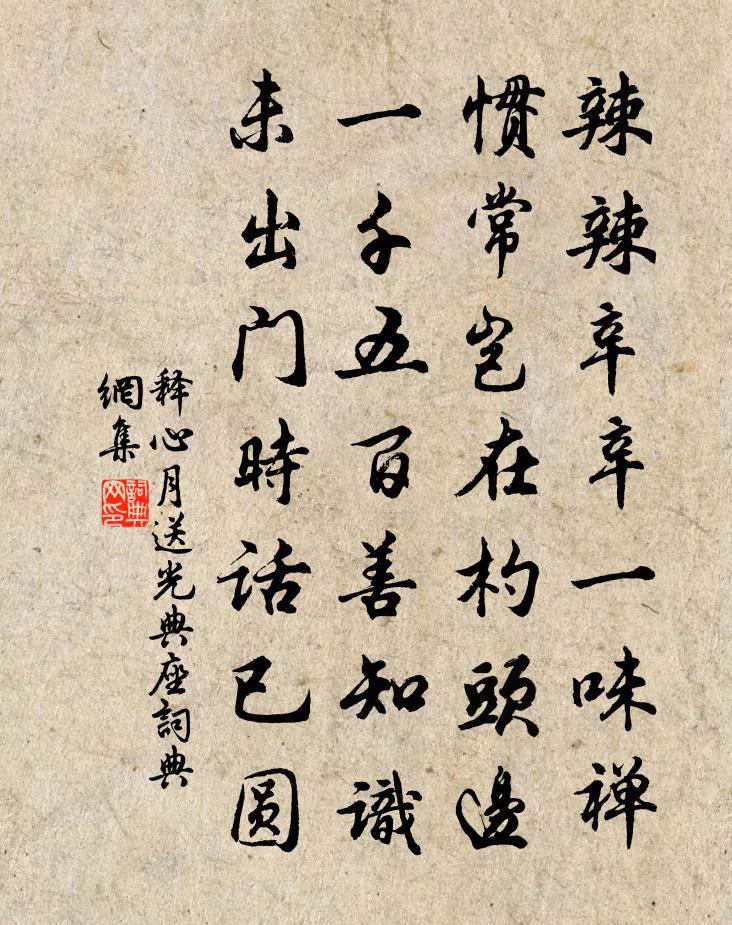 辣辣辛辛一味禅
惯常岂在杓頭邊
一千五百善知識
未出门時话已圆
释心月送光典座詞典
網集
詞典
网印